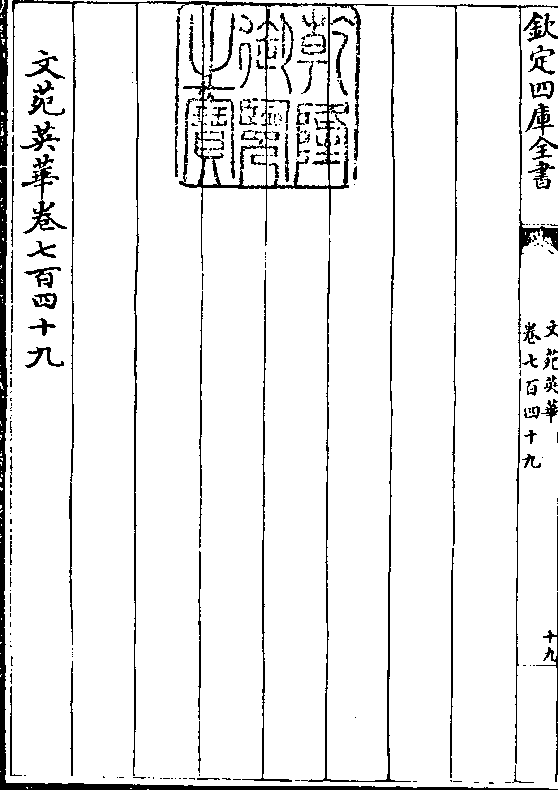 欽定四庫全書
文苑英華
卷七百四十九
十九
乾隆御覽之寶
文苑英華卷七百四十九